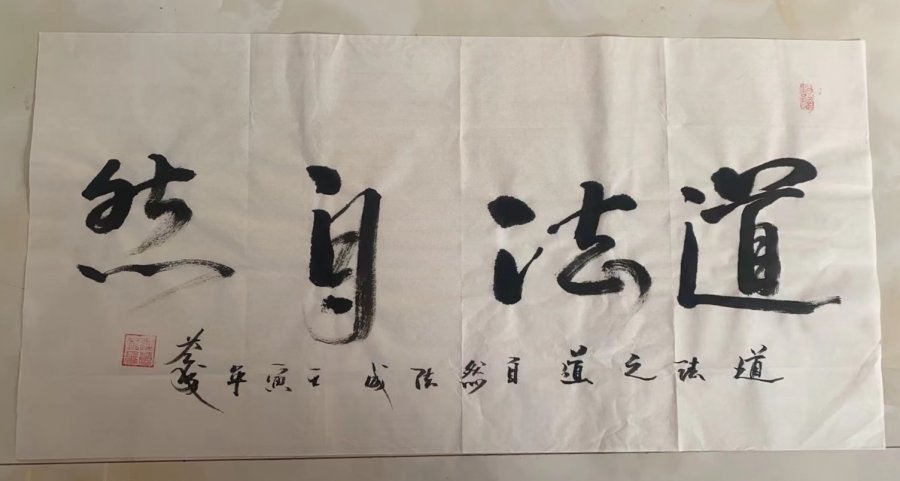 道法自然
道法之道自然陆成壬寅年